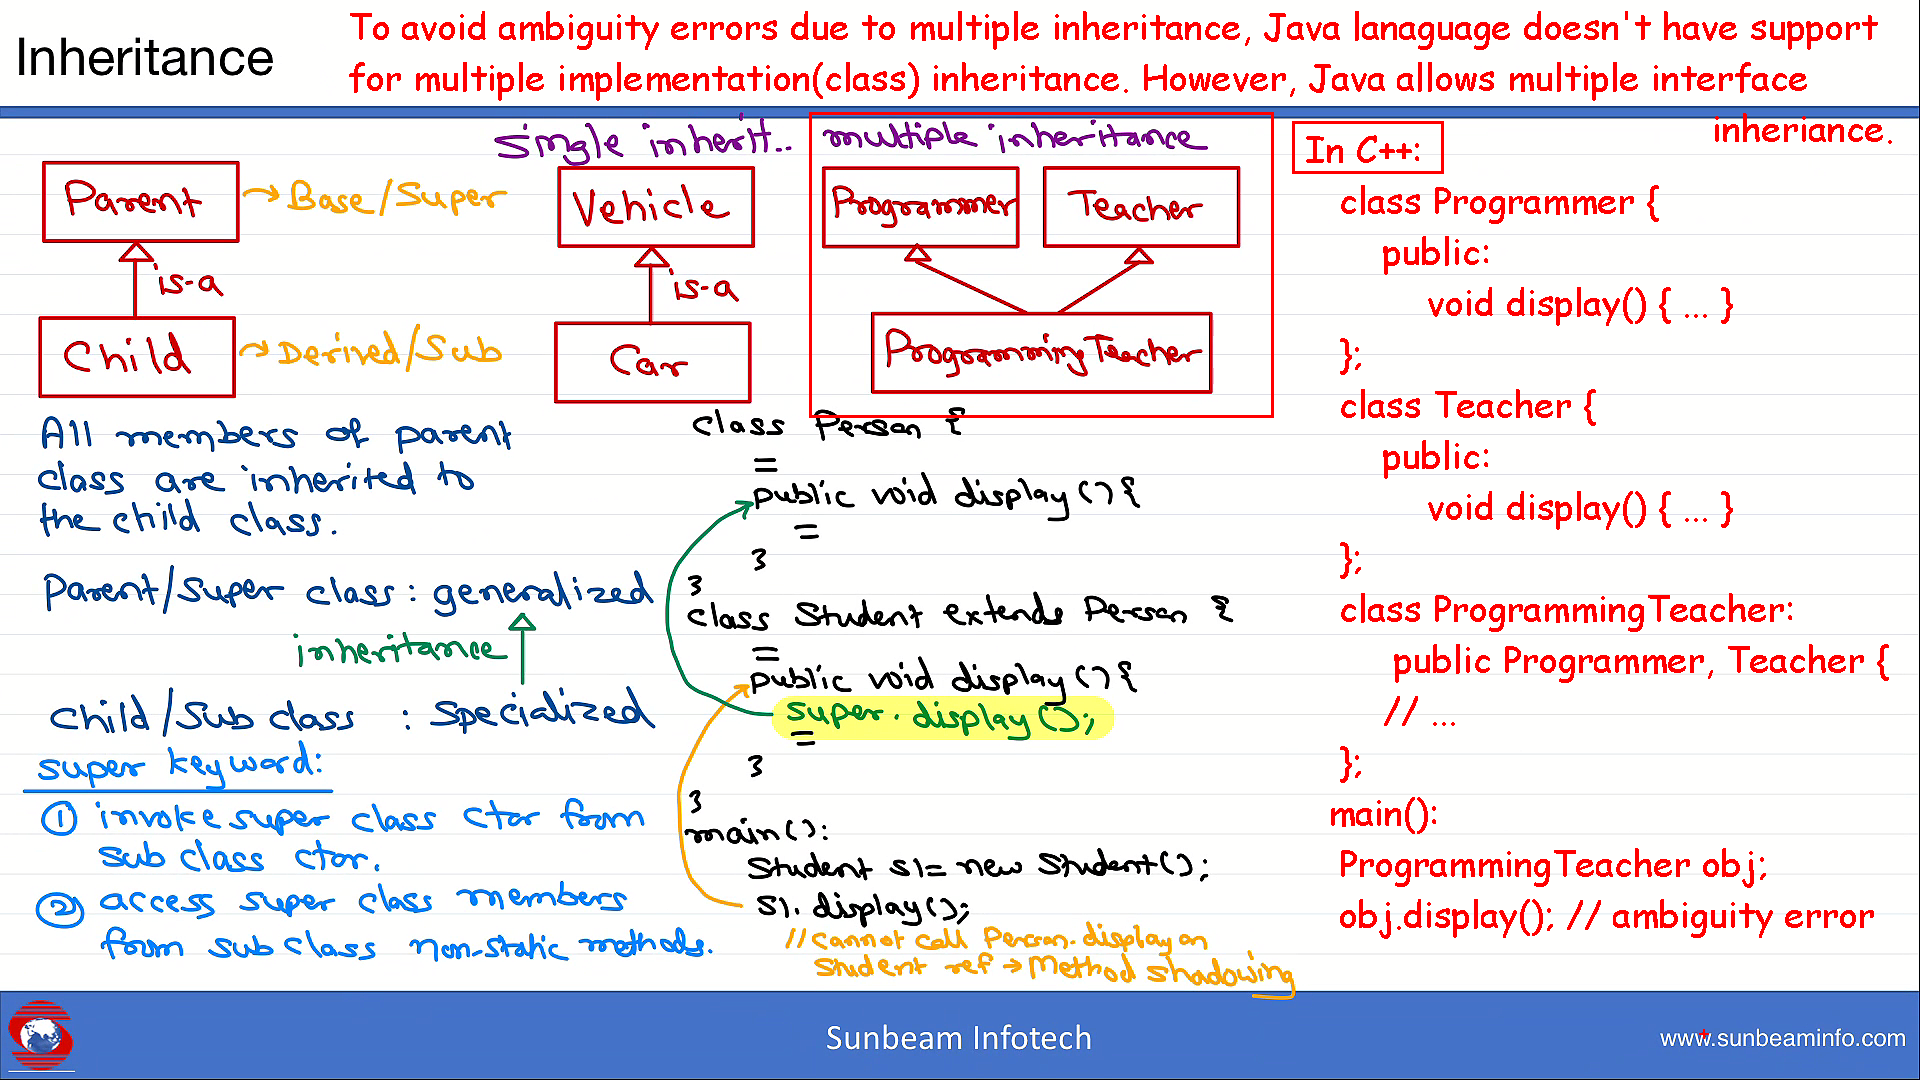 Inheritance
To avoid ambiguity errors due to multiple inheritance, Java lanaguage doesn't have support
for multiple implementation(class) inheritance. However, Java allows multiple interface
inheriance.
single inherit..
multiple inheritance
Parent → Base/Super
is-a
Child → Derived/Sub
Vehicle
is-a
Car
Programmer
Teacher
ProgrammingTeacher
All members of parent
class are inherited to
the child class.
Parent/Super class : generalized
inheritance
Child/Sub class : specialized
super keyword:
① invoke super class ctor from
sub class ctor.
② access super class members
from sub class non-static methods.
class Person {
=
public void display() {
=
}
}
class Student extends Person {
=
public void display() {
super.display();
=
}
}
main():
Student s1 = new Student();
s1.display();
// cannot call Person.display on
Student ref → Method shadowing
In C++:
class Programmer {
public:
void display() { ... }
};
class Teacher {
public:
void display() { ... }
};
class ProgrammingTeacher:
public Programmer, Teacher {
// ...
};
main():
ProgrammingTeacher obj;
obj.display(); // ambiguity error
Sunbeam Infotech
www.sunbeaminfo.com